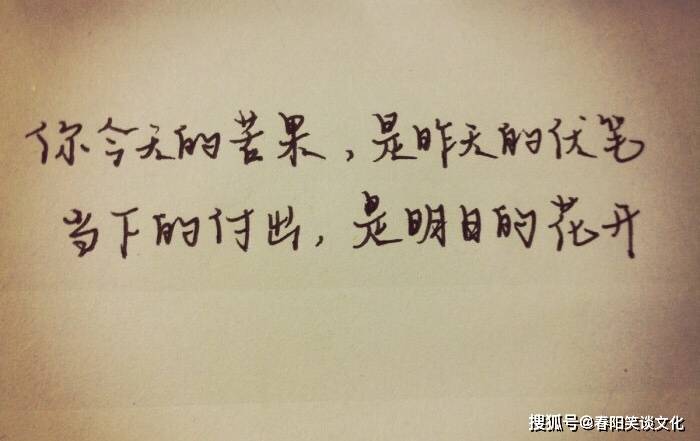 你今天的苦果，是昨天的伏笔
当下的付出，是明日的花开
搜狐号@春阳笑谈文化